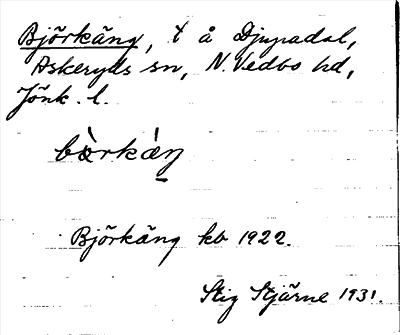 Björkäng, t å Djupadal,
Askeryds sn, N. Vedbo hd,
Jönk. l.
bærkæŋ
Björkäng kb 1922.
Stig Stjärne 1931.